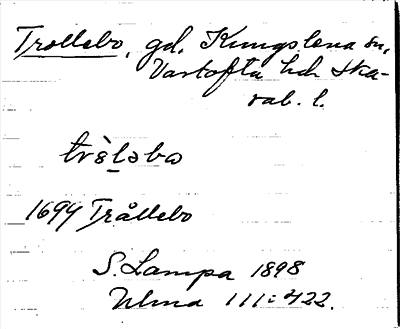 Trollebo, gd, Kungslena sn,
Vartofta hd Ska-
rab. l.
trὲ̀l̠əbo
1694 Trållebo
S. Lampa 1898
Ulma 111:422.